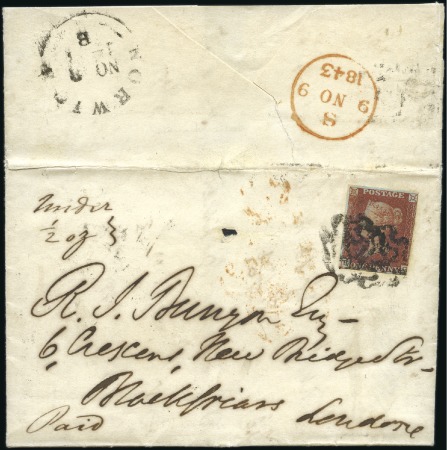 NORWICH
NO
B
S
9 NO 9
1843
Under
1/2 oz
POSTAGE
ONE PENNY
R. J. Bunyon Esq
6, Crescent, New Bridge St
Blackfriars
London
Paid